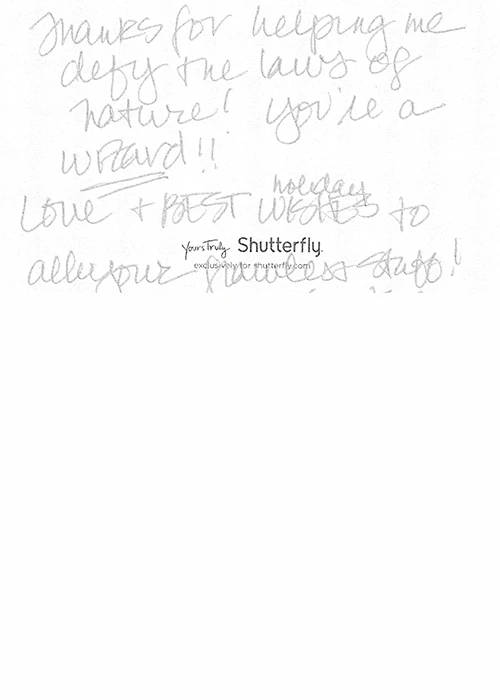 Thanks for helping me
defy the laws of
nature! You're a
wizard!!
holiday
Love + BEST WISHES to
Yours Truly Shutterfly.
exclusively for shutterfly.com
all your flawless staff!